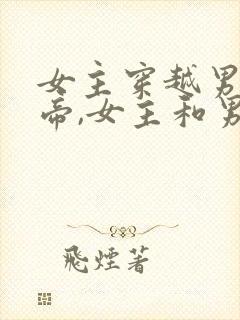 女主穿越男
帝,女主和男
飛煙著